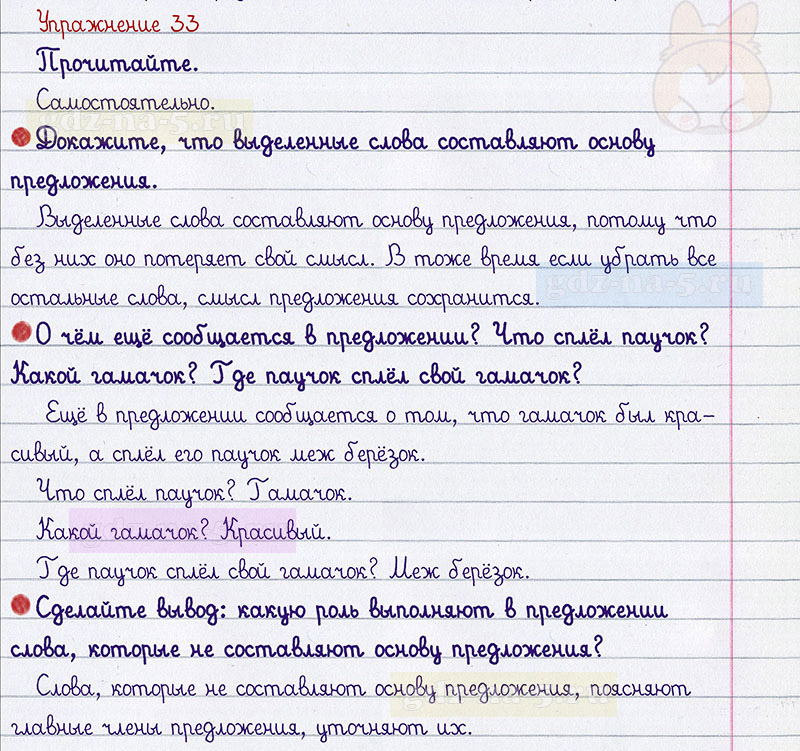 Упражнение 33
Прочитайте.
Самостоятельно.
gdz-na-5.ru
Докажите, что выделенные слова составляют основу
предложения.
Выделенные слова составляют основу предложения, потому что
без них оно потеряет свой смысл. В тоже время если убрать все
gdz-na-5.ru
остальные слова, смысл предложения сохранится.
О чём ещё сообщается в предложении? Что сплёл паучок?
Какой гамачок? Где паучок сплёл свой гамачок?
Ещё в предложении сообщается о том, что гамачок был кра-
сивый, а сплёл его паучок меж берёзок.
Что сплёл паучок? Гамачок.
Какой гамачок? Красивый.
Где паучок сплёл свой гамачок? Меж берёзок.
Сделайте вывод: какую роль выполняют в предложении
слова, которые не составляют основу предложения?
Слова, которые не составляют основу предложения, поясняют
gdz-na-5.ru
главные члены предложения, уточняют их.